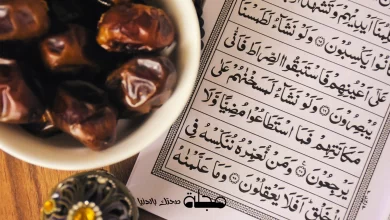 مْنَا أَيْدِيهِمْ وَتَشْهَدُ أَرْ
انُوا يَكْسِبُونَ ۝ وَلَوْ نَشَاءُ لَطَمَسْنَا
عَلَىٰ أَعْيُنِهِمْ فَاسْتَبَقُوا الصِّرَاطَ فَأَنَّىٰ
يُبْصِرُونَ ۝ وَلَوْ نَشَاءُ لَمَسَخْنَاهُمْ عَلَىٰ
مَكَانَتِهِمْ فَمَا اسْتَطَاعُوا مُضِيًّا وَلَا
يَرْجِعُونَ ۝ وَمَنْ نُعَمِّرْهُ نُنَكِّسْهُ فِي
الْخَلْقِ أَفَلَا يَعْقِلُونَ ۝ وَمَا عَلَّمْنَاهُ
مجلة صحتك بالدنيا